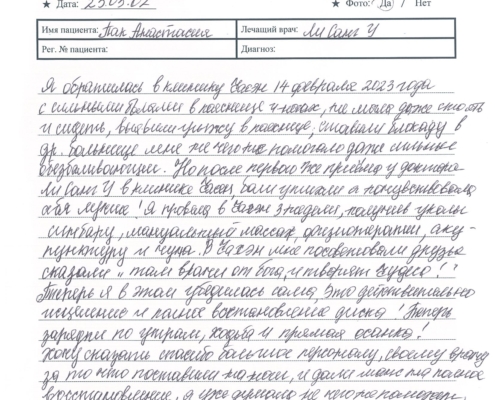 ★ Дата: 23.03.02 ★ Фото: Да / Нет
Имя пациента: Пак Анастасия Лечащий врач: Ли Санг У
Рег. № пациента: Диагноз:
Я обратилась в клинику Чахэн 14 февраля 2023 года
с сильными болями в пояснице и ногах, не могла даже спать
и сидеть, выявили грыжу в пояснице, ставили блокаду в
др. больнице мне не чего не помогало даже сильные
обезбаливающие. Но после первого же приёма у доктора
Ли Санг У в клинике Чахэн боли утихли я почувствовала
себя лучше! Я провела в Чахэн 3 недели, получив уколы
синбаро, мануальный массаж, физиотерапии, аку-
пунктуру и чуна. В Чахэн мне посоветовали друзья
сказали „там врачи от бога, и творят чудеса!"
Теперь я в этом убедилась сама, это действительно
исцеление и полное востановление диска! Теперь
зарядки по утрам, ходьба и прямая осанка!
Хочу сказать спасибо большое персоналу, своему врачу
за то что поставили на ноги, и дали мне на полное
восстановление, я уже думала не чего не поможет,